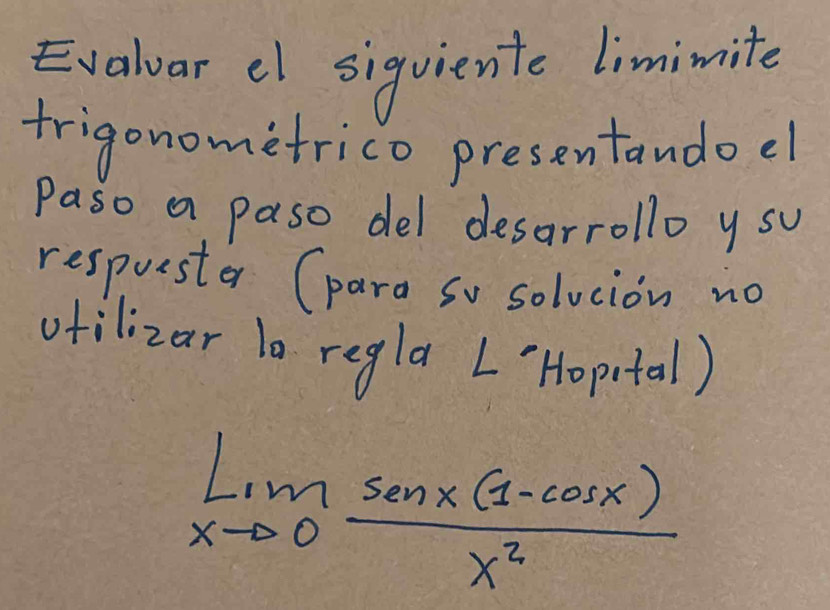 Evaluar el siguiente limimite
trigonométrico presentando el
Paso a paso del desarrollo y su
respuesta (para su solución no
utilizar la regla L'Hopital)
Lim sen x (1-cosx)
x→0 x²